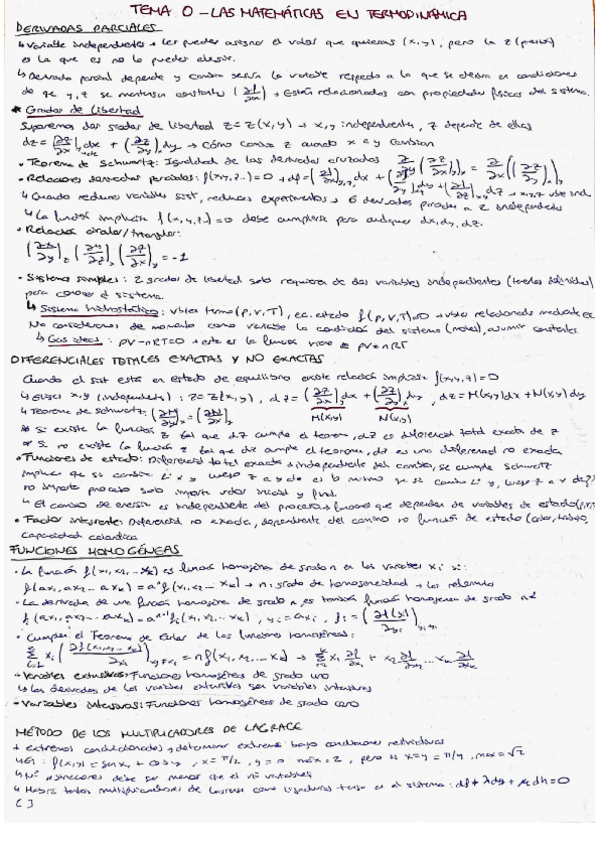 TEMA 0 - LAS MATEMÁTICAS EN TERMODINÁMICA
DERIVADAS PARCIALES
↳ Variable independientes → Les puedes asignar el valor que quieras (x,y), pero la z
es la que es no lo puedes elegir.
↳ Derivada parcial depende y cambia según la variable respecto a la que se deriva en condiciones
de que y, z se mantengan constantes → Están relacionados con propiedades físicas del sistema.
* Grados de libertad
Suponemos dos grados de libertad z = z(x,y) → x,y independientes, z depende de ellas
dz = (∂z/∂x)_y dx + (∂z/∂y)_x dy → Cómo cambia z cuando x e y cambian
• Teorema de Schwartz: Igualdad de las derivadas cruzadas
• Relaciones derivadas parciales: f(x,y,z..) = 0 → df =
↳ Cuando reduces variables sist, reduces experimentos → 6 derivadas parciales a 2 independientes
↳ La función implícita f(x,y,z..) = 0 debe cumplirse para cualquier dx, dy, dz.
• Relación circular/triangular:
(∂x/∂y)_z (∂y/∂z)_x (∂z/∂x)_y = -1
• Sistemas simples: 2 grados de libertad solo requiere de dos variables independientes
para conocer el sistema.
↳ Sistema hidrostático: vbles termo (p,V,T), ec. estado f(p,V,T)=0 → vbles relacionadas mediante ec.
No consideramos de momento como variable la cantidad del sistema (moles), asumir constantes
↳ Gas ideal: pV - nRT = 0 → esta es la función viene de pV = nRT
DIFERENCIALES TOTALES EXACTAS Y NO EXACTAS
Cuando el sist está en estado de equilibrio existe relación implícita f(x,y,z) = 0
↳ Elegir x,y (independientes): z = z(x,y), dz = (∂z/∂x)_y dx + (∂z/∂y)_x dy, dz = M(x,y)dx + N(x,y)dy
M(x,y) N(x,y)
↳ Teorema de Schwartz: (∂M/∂y)_x = (∂N/∂x)_y
* Si existe la función z tal que dz cumple el teorema, dz es diferencial total exacta de z
* Si no existe la función z tal que dz cumple el teorema, dz es una diferencial no exacta
• Funciones de estado: Diferencial total exacta → independiente del camino, se cumple Schwartz
implica que si cambia 1º x y luego z a y da es lo mismo que si cambio 1º y, luego z a x
no importa proceso solo importa valor inicial y final.
↳ El cambio de energía es independiente del proceso → funciones que dependen de variables de estado
• Factor integrante: Diferencial no exacta, dependiente del camino no función de estado (calor, trabajo,
capacidad calorífica
FUNCIONES HOMOGÉNEAS
• La función f(x₁, x₂... xₖ) es función homogénea de grado n en las variables xᵢ si:
f(ax₁, ax₂... axₖ) = aⁿ f(x₁, x₂... xₖ) → n: grado de homogeneidad
• La derivada de una función homogénea de grado n es también función homogénea de grado n-1
• Cumplen el Teorema de Euler de las funciones homogéneas:
• Variables extensivas: Funciones homogéneas de grado uno
↳ las derivadas de las variables extensivas son variables intensivas
• Variables intensivas: Funciones homogéneas de grado cero
MÉTODO DE LOS MULTIPLICADORES DE LAGRAGE
→ extremos condicionados y determinar extremos bajo condiciones restrictivas
↳ Ej: f(x,y) = sen x + cos y, x = π/2, y = 0 máx = 2, pero si x=y = π/4, máx = √2
↳ Nº restricciones debe ser menor que el nº variables
↳ Habrá tantos multiplicadores de Lagrange como ligaduras tenga en el sistema: df + λdg + μdh = 0